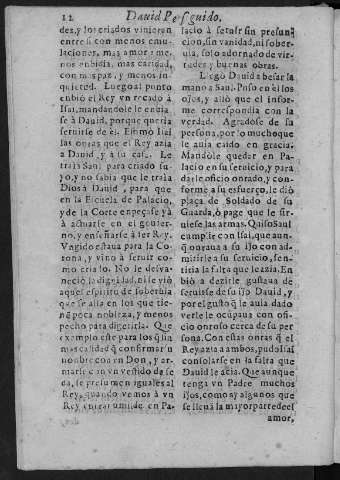 12 Dauid Perseguido.
dez, y los criados vinieran
entre si con menos emu-
laciones, mas amor; me-
nos enbidia, mas caridad,
con mas paz, y menos in-
quietud. Luego al punto
enbiò el Rey vn recado à
Isai, mandandole le enbia-
se à Dauid, porque queria
seruirse de èl. Estimò Isai
las honras que el Rey azia
a Dauid, y a su casa. Le
traìa Saul para criado su-
yo, y no sabia que le traìa
Dios à Dauid, para que
en la Escuela de Palacio,
y de la Corte enpeçase yà
à actuarse en el gouier-
no, y enseñarse à ser Rey.
Vngido estaua para la Co-
rona, y vino à seruir co-
mo criado. No le desva-
neciò la dignidad, ni se viò
aquel espiritu de soberuia
que se alla en los que tie-
nẽ poca nobleza, y menos
pecho para digerirla. Que
exemplo este para los q̃ sin
mas calidad q̃ confirmar ũ
nonbre con vn Don, y ar-
marse con vn vestido de se
da, se presumen iguales al
Rey, quando vemos à vn
Rey entrar umilde en Pa-
lacio à seruir sin presun-
cion, sin vanidad, ni sober-
uia, solo adornado de vir-
tudes, y buenas obras.
Llegò Dauid a besar la
mano a Saul. Puso en èl los
ojos, y allò que el infor-
me correspondia con la
verdad. Agradòse de su
persona, por lo mucho que
le auia caido en gracia.
Mandòle quedar en Pa-
lacio en su seruicio, y para
darle oficio onrado, y con-
forme a su esfuerço, le diò
plaça de Soldado de su
Guarda, ò page que le sir-
uiese las armas. Quiso Saul
cumplir con Isai, que aun-
q̃ onraua a su ijo con ad-
mitirle a su seruicio, sen-
tiria la falta que le azia. En
biò a dezirle gustaua de
seruirse de su ijo Dauid, y
por el gusto q̃ le auia dado
verle le ocupaua con ofi-
cio onroso cerca de su per
sona. Con estas onras q̃ el
Rey azia a ambos, pudo Isai
consolarse en la falta que
Dauid le acia. Que aunque
tenga vn Padre muchos
ijos, como ay algunos que
se lleuã la mayor parte de el
amor,